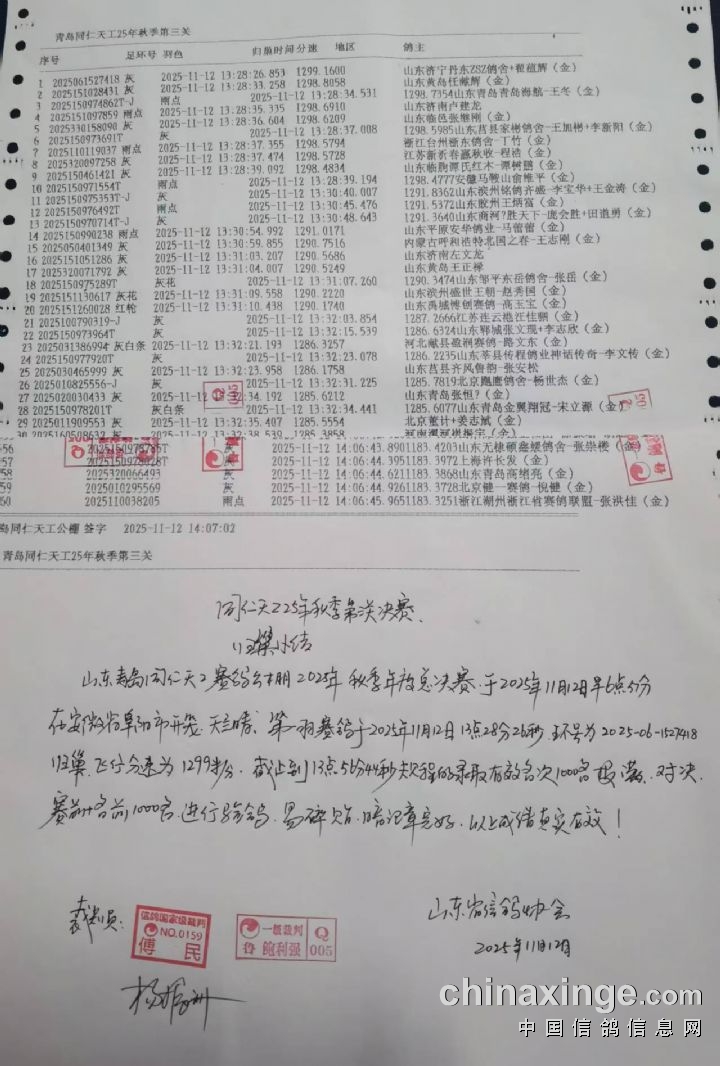 青岛同仁天工25年秋季第三关
序号 足环号 羽色 归巢时间 分速 地区 鸽主
1 2025061527418 灰 2025-11-12 13:28:26.853 1299.1600 山东济宁丹东ZSZ鸽舍+翟蕴辉(金)
2 2025151028431 灰 2025-11-12 13:28:33.258 1298.8058 山东黄岛任献辉(金)
3 2025150974862T-J 雨点 2025-11-12 13:28:34.531 1298.7354山东青岛青岛海航-王冬(金)
4 2025151097859 雨点 2025-11-12 13:28:35.335 1298.6910 山东济南卢建龙
5 2025330158090 灰 2025-11-12 13:28:36.604 1298.6209 山东临邑张继刚(金)
6 2025150973691T 灰 2025-11-12 13:28:37.008 1298.5985山东莒县家彬鸽舍-王加彬+李新阳(金)
7 2025101119037 雨点 2025-11-12 13:28:37.355 1298.5794 浙江台州浙东鸽舍-丁竹(金)
8 2025320097258 灰 2025-11-12 13:28:37.474 1298.5728 江苏新沂春赢秋收-程浩(金)
9 2025150461421 灰 2025-11-12 13:28:39.092 1298.4834 山东临朐谭氏红木-谭树熙(金)
10 2025150971554T 雨点 2025-11-12 13:28:39.194 1298.4777安徽马鞍山俞维平(金)
11 2025150975353T-J 灰 2025-11-12 13:30:40.007 1291.8362山东滨州铭鸽齐盛-李宝华+王金涛(金)
12 2025150976492T 雨点 2025-11-12 13:30:45.476 1291.5372山东胶州王炳富(金)
13 2025150970714T-J 灰 2025-11-12 13:30:48.643 1291.3640山东商河?胜天下-庞会胜+田道勇(金)
14 2025150990238 雨点 2025-11-12 13:30:54.992 1291.0171 山东平原安华鸽业-马蕾蕾(金)
15 2025050401349 灰 2025-11-12 13:30:59.855 1290.7516 内蒙古呼和浩特北国之春-王志刚(金)
16 2025151051286 灰 2025-11-12 13:31:03.207 1290.5686 山东济南左文龙
17 2025320071792 灰 2025-11-12 13:31:04.007 1290.5249 山东黄岛王正樑
18 202515097528​9T 灰花 2025-11-12 13:31:07.260 1290.3474山东邹平东岳鸽舍-张岳(金)
19 2025151130617 灰花 2025-11-12 13:31:09.558 1290.2220 山东滨州盛世王朝-赵秀国(金)
20 2025151260028 红轮 2025-11-12 13:31:10.438 1290.1740 山东禹城博创赛鸽-高玉宝(金)
21 2025100790319-J 灰 2025-11-12 13:32:03.854 1287.2666江苏连云港江佳骊(金)
22 202515097396​4T 灰 2025-11-12 13:32:15.539 1286.6324山东郓城张文现+李志欣(金)
23 2025031386994 灰白条 2025-11-12 13:32:21.193 1286.3257 河北献县盈润赛鸽-路文东(金)
24 202515097792​0T 灰 2025-11-12 13:32:23.078 1286.2235山东莘县传程鸽业神话传奇-李文传(金)
25 2025030465999 灰 2025-11-12 13:32:23.958 1286.1758 山东莒县齐风鲁韵-张安松
26 2025010825556-J 灰 2025-11-12 13:32:31.225 1285.7819北京飚鹰鸽舍-杨世杰(金)
27 2025020030433 灰 2025-11-12 13:32:34.192 1285.6212 山东青岛张恒?(金)
28 202515097820​1T 灰白条 2025-11-12 13:32:34.441 1285.6077山东青岛金翼翔冠-宋立源(金)
29 2025011909553 灰 2025-11-12 13:32:35.407 1285.5554 北京董计+姜志斌
30 2025160508633 灰 2025-11-12 13:32:38.539 1285.3858
56 灰 2025-11-12 14:06:43.8901183.4203山东无棣硕鑫媛鸽舍-张崇楼(金)
57 灰 2025-11-12 14:06:44.3951183.3972上海许长发(金)
58 2025320066493 灰 2025-11-12 14:06:44.6211183.3868山东青岛高绪亮(金)
59 2025010295569 灰 2025-11-12 14:06:44.9261183.3728北京健一赛鸽-倪健(金)
60 2025110038205 雨点 2025-11-12 14:06:45.9651183.3251浙江湖州浙江省赛鸽联盟-张洪佳(金)
岛同仁天工公棚 签字 2025-11-12 14:07:02
青岛同仁天工25年秋季第三关
同仁天工25年秋季第三关决赛
归巢小结
山东青岛同仁天工赛鸽公棚2025年秋季年度总决赛.于2025年11月12日早6点5分
在安徽省阜阳市开笼.天气晴.第一羽赛鸽于2025年11月12日13点28分26秒.环号为2025-06-1527418
归巢.飞行分速为1299米/分.截止到13点56分44秒规程的录取有效名次1000名报满.对决
赛前十名前1000名.进行验鸽.易碎贴.暗记章完好.以上成绩真实有效!
裁判员:
信鸽国家级裁判
NO.0159
傅民
一级裁判 Q
鲁 鲍利强 005
山东省信鸽协会
2025年11月12日
chinaxinge.com
中国信鸽信息网